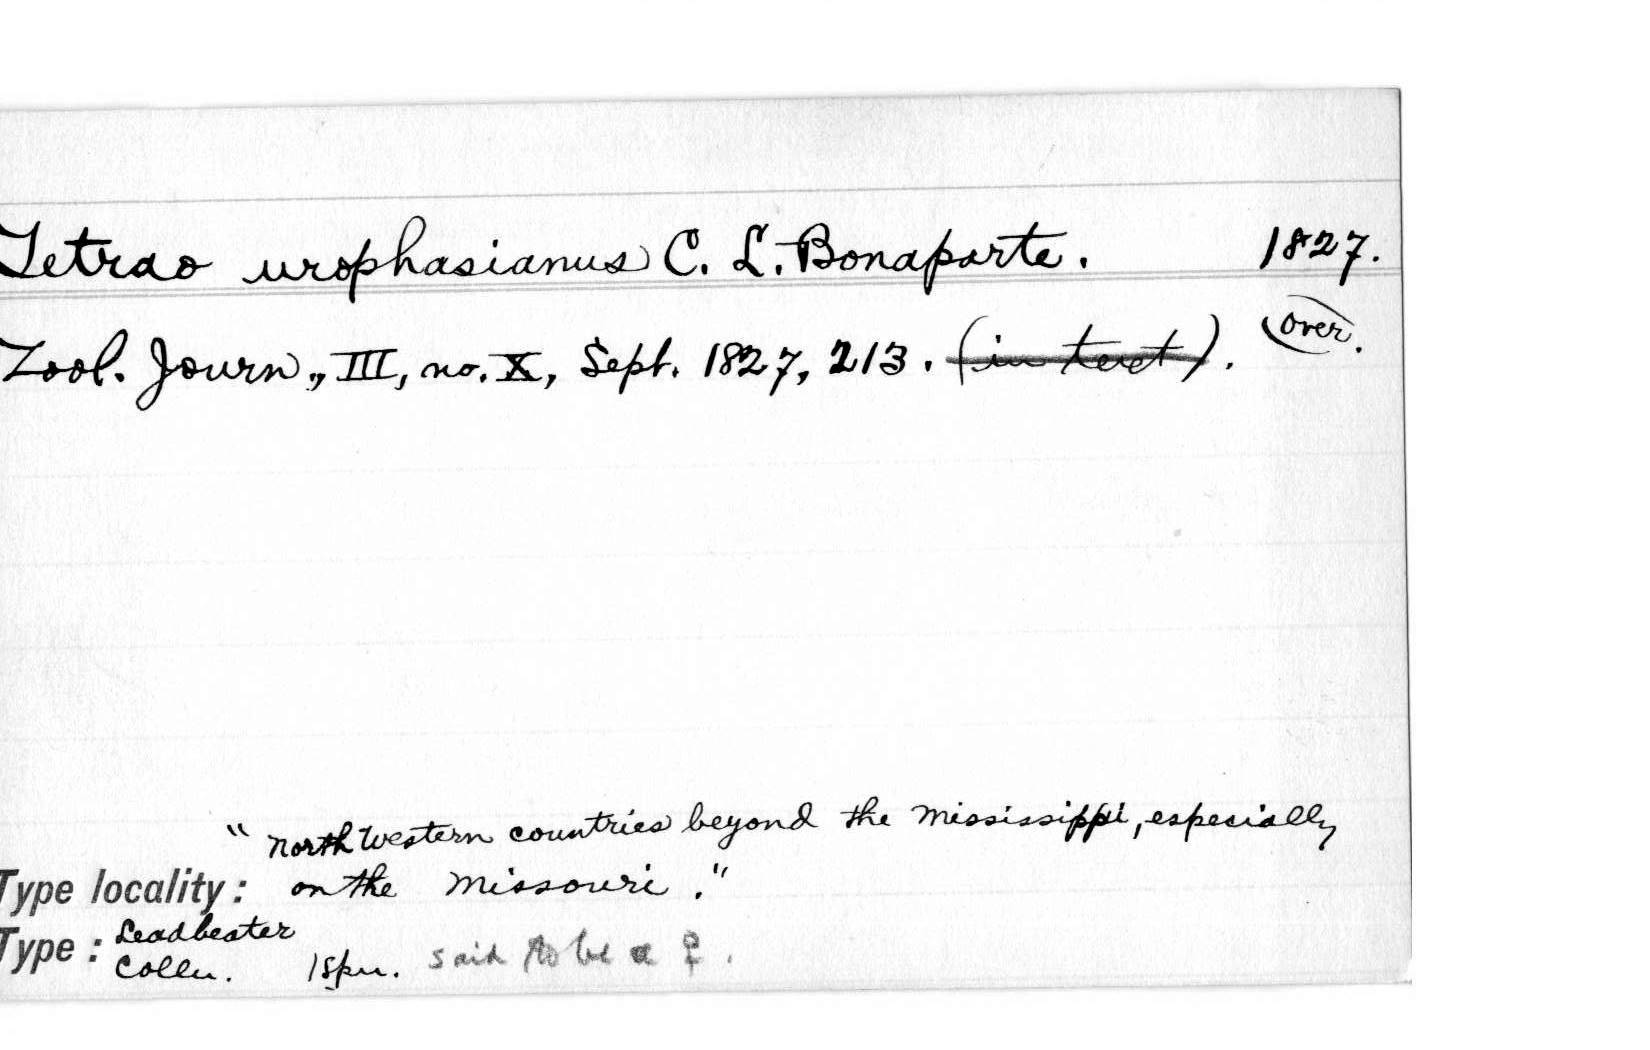 Tetrao urophasianus C. L. Bonaparte. 1827.
Zool. Journ., III, no. X, Sept. 1827, 213. (in text). (over.
"North Western countries beyond the Mississippi, especially
Type locality: on the Missouri."
Type: Leadbeater
Colln. 1 spn. said to be a ♀.